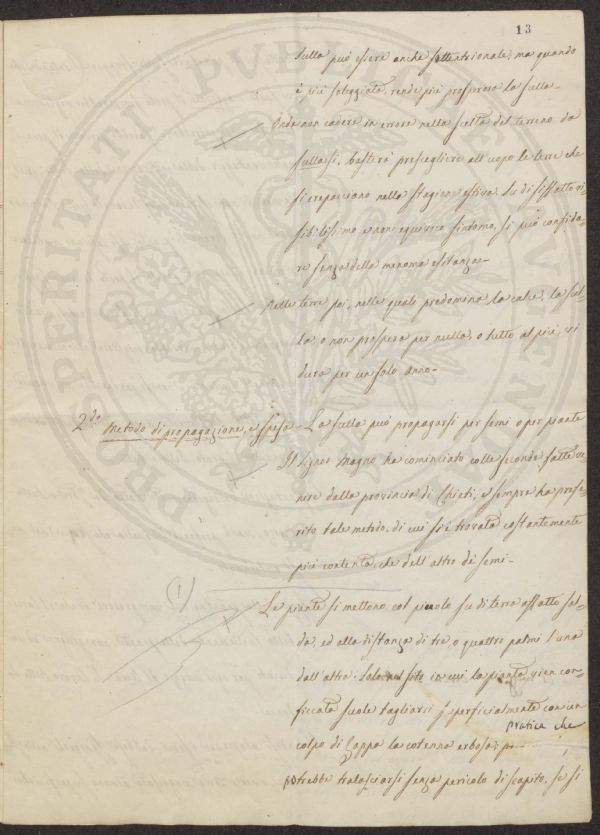 13
sulla può essere anche settentrionale, ma quando
è più soleggiata, rende più prosperoso la sulla.
Onde non cadere in errore nella scelta del terreno da
sullarsi, basterà prescegliere all'uopo le terre che
si crepacciano nella stagione estiva. Su di siffatto vi=
sibilissimo e non equivoco sintomo, si può confida=
re senza della menoma esitanza.
Nelle terre poi, nelle quali predomina la calce, la sul=
la, o non prospera per nulla, o tutto al più, vi
dura per un solo anno.
2.do Metodo di propagazione, e spesa. La sulla può propagarsi per semi o per piante
Il Signor Magno ha cominciato colle seconde fatte ve=
nire dalla provincia di Chieti, e sempre ha prefe=
rito tale metodo, di cui si è trovato costantemente
più contento, che dell'altro de' semi.
(1)
Le piante si mettono col piuolo su di terra affatto sal=
da, ed alla distanza di tre, o quattro palmi l'una
dall'altra. Solo nel sito in cui la pianta vien con=
ficcata suole tagliarsi superficialmente con un
colpo di zappa la cotenna erbosa; pratica che
potrebbe tralasciarsi senza pericolo di scapito, se si
PROSPERITATI PUBLICAE AUGENDAE